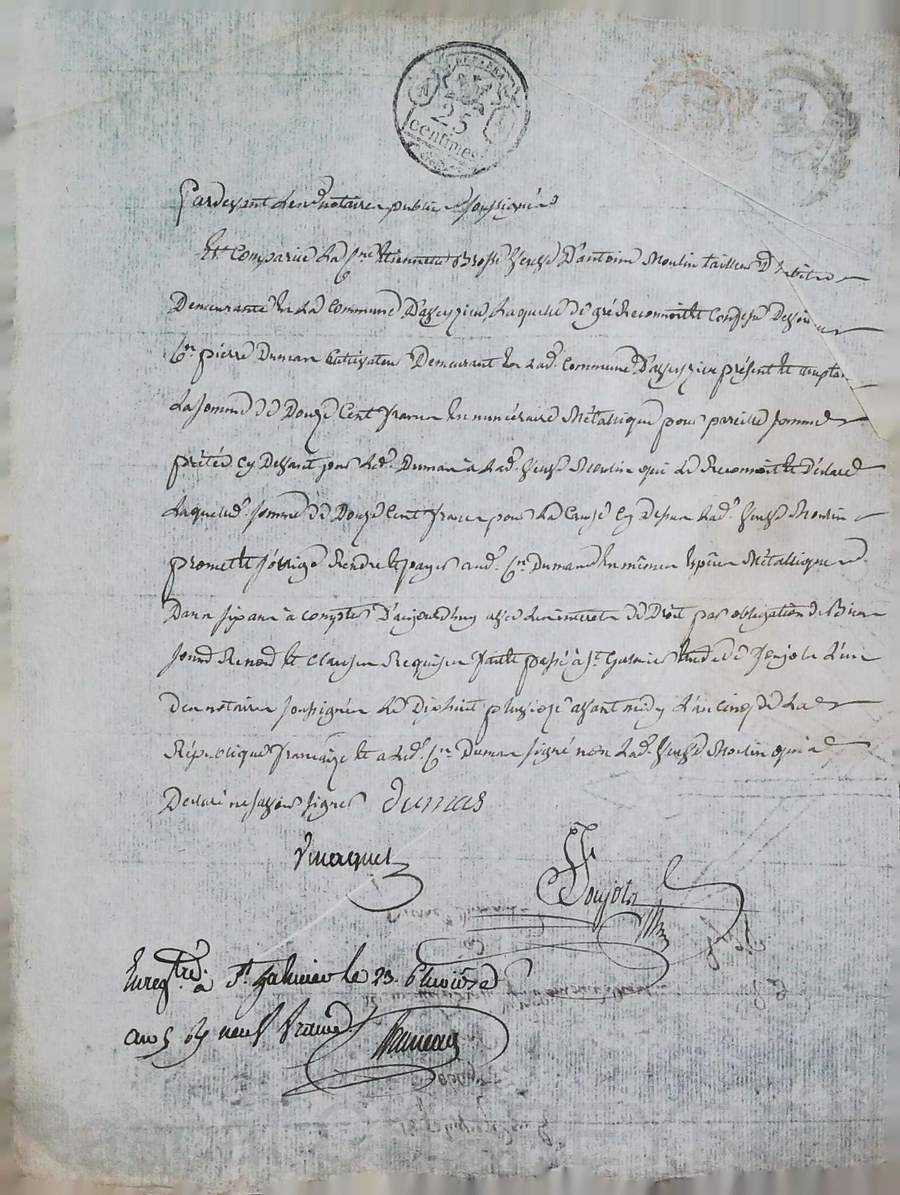 25
centimes
Pardevant Les notaires publics Soussignés
Est Comparue La Cne Etiennette Brosse Veuve D'antoine Moulin tailleur D'habits
Demeurante En La Commune D'aveyzieu, Laquelle de gré Reconnoit Et Confesse Devoir au
Cn pierre Dumas Cultivateur Demeurant En Lad. Commune D'aveyzieu présent Et acceptant
La Somme De Douze Cent francs En numéraire Métallique pour pareille Somme
prêtée Cy Devant par Led. Dumas à Lad. Veuve Moulin qui Le Reconnoit Et déclare
Laquelle Somme De Douze Cent francs pour La Cause Cy Dessus Lad. Veuve Moulin
promet Et s'oblige Rendre Et payer aud. Cn Dumas En mêmes Espèces Métalliques
Dans Six ans à Compter D'aujourd'huy avec Les interets De Droit par obligation de Biens
Soumis Renon. Et Clauses Requises fait Et passé à St. Galmier Etude de Ponjole L'un
des notaires Soussignés Le Dix huit pluviose avant midy L'an cinq De La
République française Et a Led. Cn Dumas Signé non Lad. Veuve Moulin qui a
Déclaré ne Savoir Signer Dumas
Enregtré. à St Galmier le 23. Pluviôse
an 5 neuf francs